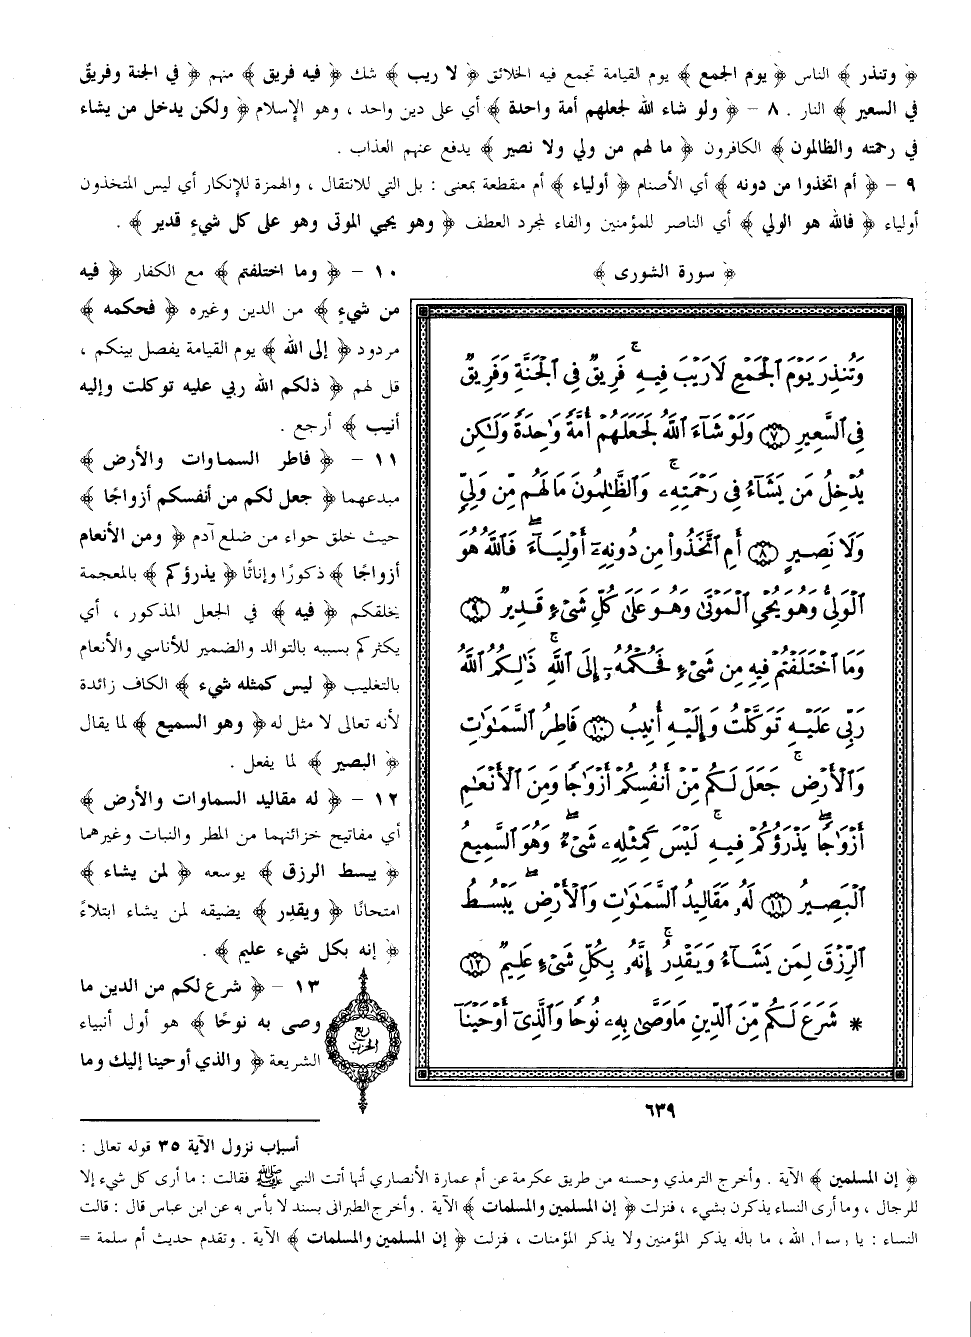 ﴿ وتنذر ﴾ الناس ﴿ يوم الجمع ﴾ يوم القيامة تجمع فيه الخلائق ﴿ لا ريب ﴾ شك ﴿ فيه فريق ﴾ منهم ﴿ في الجنة وفريقٌ
في السعير ﴾ النار . ٨ – ﴿ ولو شاء الله لجعلهم أمة واحدة ﴾ أي على دين واحد ، وهو الإسلام ﴿ ولكن يدخل من يشاء
في رحمته والظالمون ﴾ الكافرون ﴿ ما لهم من ولي ولا نصير ﴾ يدفع عنهم العذاب .
٩ – ﴿ أم اتخذوا من دونه ﴾ أي الأصنام ﴿ أولياء ﴾ أم منقطعة بمعنى : بل التي للانتقال ، والهمزة للإنكار أي ليس المتخذون
أولياء ﴿ فالله هو الولي ﴾ أي الناصر للمؤمنين والفاء لمجرد العطف ﴿ وهو يحيي الموتى وهو على كل شيءٍ قدير ﴾ .
﴿ سورة الشورى ﴾
وَتُنذِرَ يَوْمَ ٱلْجَمْعِ لَا رَيْبَ فِيهِ ۚ فَرِيقٌ فِى ٱلْجَنَّةِ وَفَرِيقٌ
فِى ٱلسَّعِيرِ ﴿٧﴾ وَلَوْ شَآءَ ٱللَّهُ لَجَعَلَهُمْ أُمَّةً وَٰحِدَةً وَلَٰكِن
يُدْخِلُ مَن يَشَآءُ فِى رَحْمَتِهِۦ ۚ وَٱلظَّٰلِمُونَ مَا لَهُم مِّن وَلِىٍّ
وَلَا نَصِيرٍ ﴿٨﴾ أَمِ ٱتَّخَذُوا۟ مِن دُونِهِۦٓ أَوْلِيَآءَ ۖ فَٱللَّهُ هُوَ
ٱلْوَلِىُّ وَهُوَ يُحْىِ ٱلْمَوْتَىٰ وَهُوَ عَلَىٰ كُلِّ شَىْءٍ قَدِيرٌ ﴿٩﴾
وَمَا ٱخْتَلَفْتُمْ فِيهِ مِن شَىْءٍ فَحُكْمُهُۥٓ إِلَى ٱللَّهِ ۚ ذَٰلِكُمُ ٱللَّهُ
رَبِّى عَلَيْهِ تَوَكَّلْتُ وَإِلَيْهِ أُنِيبُ ﴿١٠﴾ فَاطِرُ ٱلسَّمَٰوَٰتِ
وَٱلْأَرْضِ ۚ جَعَلَ لَكُم مِّنْ أَنفُسِكُمْ أَزْوَٰجًا وَمِنَ ٱلْأَنْعَٰمِ
أَزْوَٰجًا ۖ يَذْرَؤُكُمْ فِيهِ ۚ لَيْسَ كَمِثْلِهِۦ شَىْءٌ ۖ وَهُوَ ٱلسَّمِيعُ
ٱلْبَصِيرُ ﴿١١﴾ لَهُۥ مَقَالِيدُ ٱلسَّمَٰوَٰتِ وَٱلْأَرْضِ ۖ يَبْسُطُ
ٱلرِّزْقَ لِمَن يَشَآءُ وَيَقْدِرُ ۚ إِنَّهُۥ بِكُلِّ شَىْءٍ عَلِيمٌ ﴿١٢﴾
* شَرَعَ لَكُم مِّنَ ٱلدِّينِ مَا وَصَّىٰ بِهِۦ نُوحًا وَٱلَّذِىٓ أَوْحَيْنَآ
٦٣٩
١٠ – ﴿ وما اختلفتم ﴾ مع الكفار ﴿ فيه
من شيءٍ ﴾ من الدين وغيره ﴿ فحكمه ﴾
مردود ﴿ إلى الله ﴾ يوم القيامة يفصل بينكم ،
قل لهم ﴿ ذلكم الله ربي عليه توكلت وإليه
أنيب ﴾ أرجع .
١١ – ﴿ فاطر السماوات والأرض ﴾
مبدعهما ﴿ جعل لكم من أنفسكم أزواجًا ﴾
حيث خلق حواء من ضلع آدم ﴿ ومن الأنعام
أزواجًا ﴾ ذكورًا وإناثًا ﴿ يذرؤكم ﴾ بالمعجمة
يخلقكم ﴿ فيه ﴾ في الجعل المذكور ، أي
يكثركم بسببه بالتوالد والضمير للأناسي والأنعام
بالتغليب ﴿ ليس كمثله شيء ﴾ الكاف زائدة
لأنه تعالى لا مثل له ﴿ وهو السميع ﴾ لما يقال
﴿ البصير ﴾ لما يفعل .
١٢ – ﴿ له مقاليد السماوات والأرض ﴾
أي مفاتيح خزائنهما من المطر والنبات وغيرهما
﴿ يبسط الرزق ﴾ يوسعه ﴿ لمن يشاء ﴾
امتحانًا ﴿ ويقدِر ﴾ يضيقه لمن يشاء ابتلاءً
﴿ إنه بكل شيء عليم ﴾ .
١٣ – ﴿ شرع لكم من الدين ما
وصى به نوحًا ﴾ هو أول أنبياء
الشريعة ﴿ والذي أوحينا إليك وما
ربع
الحزب
أسباب نزول الآية ٣٥ قوله تعالى :
﴿ إن المسلمين ﴾ الآية . وأخرج الترمذي وحسنه من طريق عكرمة عن أم عمارة الأنصاري أنها أتت النبي ﷺ فقالت : ما أرى كل شيء إلا
للرجال ، وما أرى النساء يذكرن بشيء ، فنزلت ﴿ إن المسلمين والمسلمات ﴾ الآية . وأخرج الطبراني بسند لا بأس به عن ابن عباس قال : قالت
النساء : يا رسول الله ، ما باله يذكر المؤمنين ولا يذكر المؤمنات ، فنزلت ﴿ إن المسلمين والمسلمات ﴾ الآية . وتقدم حديث أم سلمة =